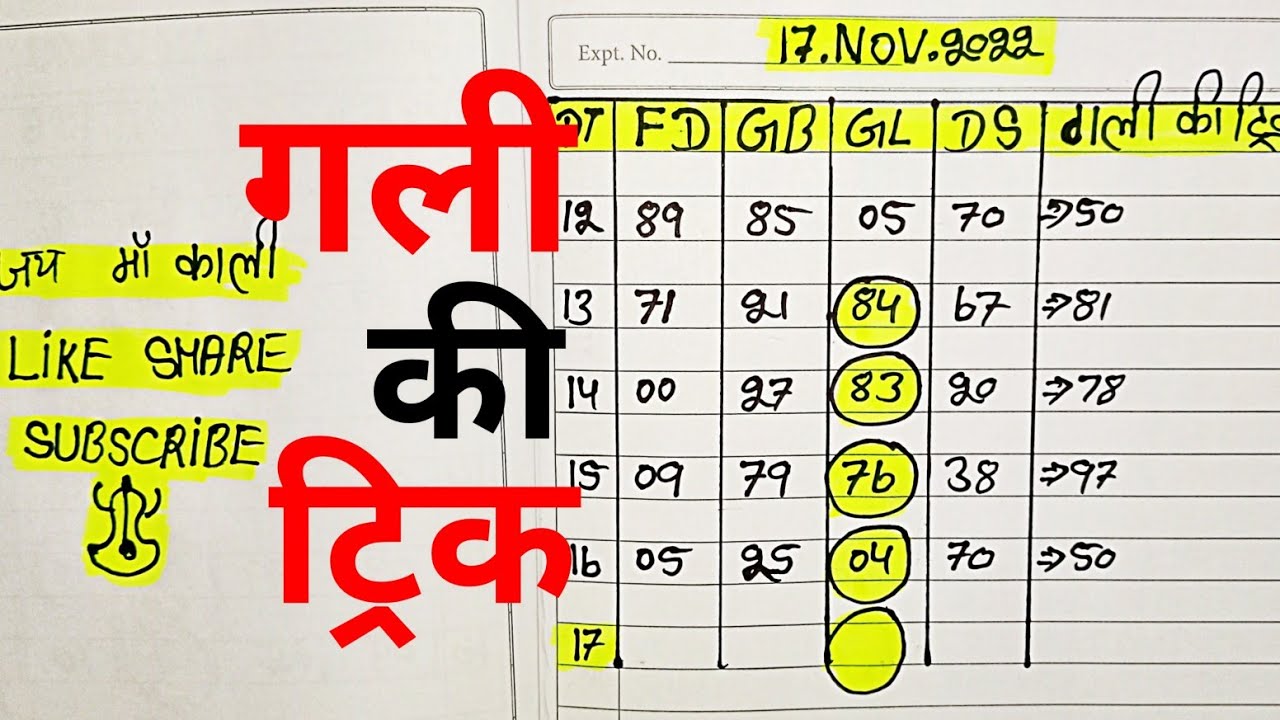 Expt. No. 17.NOV.2022
गली
की
ट्रिक
जय माँ काली
LIKE SHARE
SUBSCRIBE
DT FD GB GL DS गली की
12 89 85 05 70 ⇒50
13 71 21 84 67 ⇒81
14 00 27 83 20 ⇒78
15 09 79 76 38 ⇒97
16 05 25 04 70 ⇒50
17